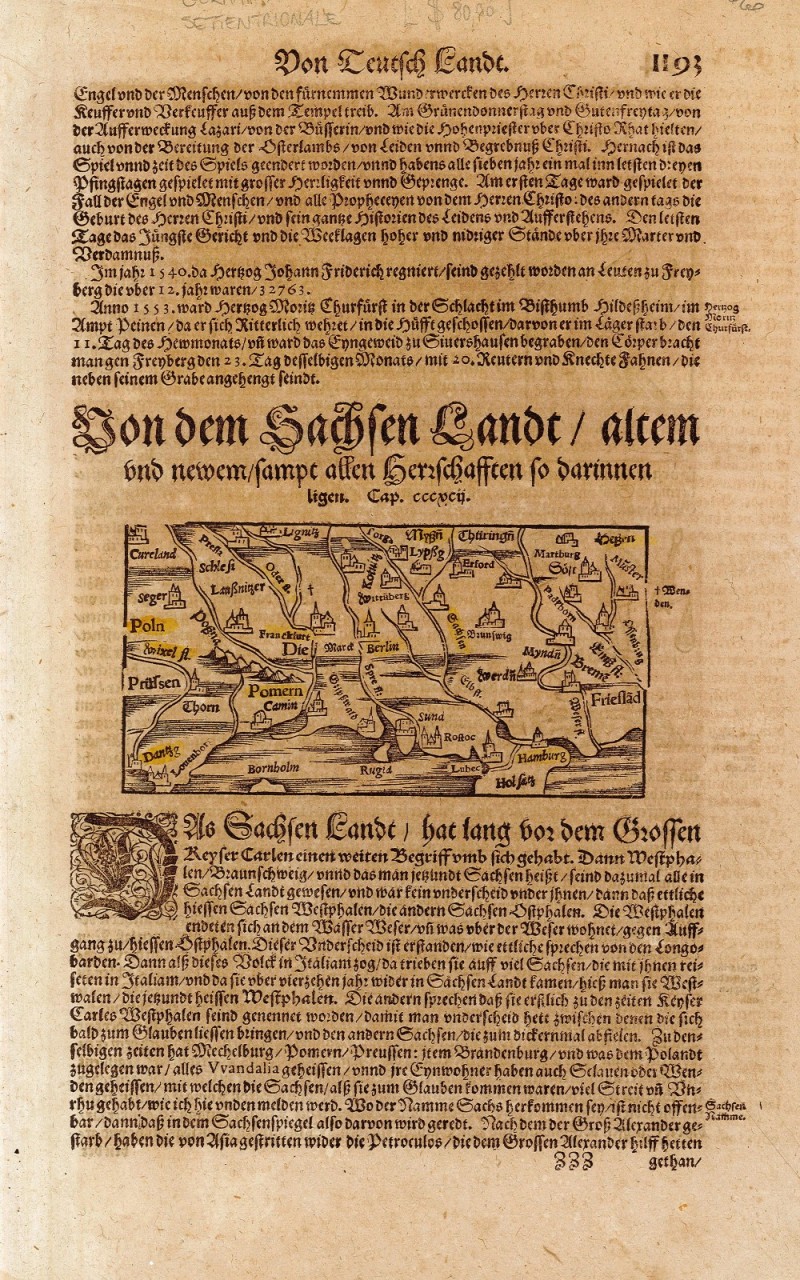 SETTENTRIONALE [ $ 80,00 ]
Von Teutsch Landt. 1193
Engel vnd der Menschen/von den fürnemmen Wunderwercken des Herren Christi/vnd wie er die
Keuffer vnd Verkeuffer auß dem Tempel treib. Am Grünendonnerstag vnd Gutenfreytag/von
der Aufferweckung Lazari/von der Büsserin/vnd wie die Hohenpriester vber Christo Rhat hielten/
auch von der Bereitung der Osterlambs/von Leiden vnnd Begrebnuß Christi. Hernach ist das
Spiel vnnd zeit des Spiels geendert worden/vnnd habens alle sieben jahr ein mal inn letsten dreyen
Pfingstagen gespielet mit grosser Herrligkeit vnnd Geprenge. Am ersten Tage ward gespielet der
Fall der Engel vnd Menschen/vnd alle Propheceyen von dem Herren Christo: des andern tags die
Geburt des Herren Christi/vnd sein gantze Historien des Leidens vnd Aufferstehens. Den letsten
Tage das Jüngste Gericht vnd die Weeklagen hoher vnd nidriger Stände vber jhre Marter vnd
Verdamnuß.
Im jahr 1540. da Hertzog Johann Friderich regniert/seind gezehlt worden an Leuten zu Frey-
berg die vber 12. jahr waren/32763.
Anno 1553. ward Hertzog Moritz Churfürst in der Schlacht im Bisthumb Hildeßheim/im
Hertzog
Moritz
Churfürst.
Ampt Peinen/da er sich Ritterlich wehret/in die Hüfft geschossen/darvon er im Läger starb/den
11. Tag des Hewmonats/vñ ward das Eyngeweid zu Siuershausen begraben/den Cörper bracht
man gen Freyberg den 23. Tag desselbigen Monats/mit 20. Reutern vnd Knechte Fahnen/die
neben seinem Grabe angehengt seindt.
Von dem Sachsen Landt/altem
vnd newem/sampt allen Herrschafften so darinnen
ligen. Cap. cccxcij.
Cureland
Preß.
Lignitz
Torg.
Mysñ
Thüringñ
Hessen
Schlesi
Oder fl.
Lypßg
Erford
Martburg
Söst
Münster
Seger
Laußnitzer
†
Wittüberg
Paderborn
† Wen-
den.
Poln
Franckfurt
Sachsen
Brunswig
Wixel fl.
Die Marck
Berlin
Myndñ
Breme
Prüssen
Pomern
Spre fl.
Elb fl.
Werdñ
Frießläd
Thorn
Camin
Gripswald
Sund
Weser fl.
Rostoc
Dantzg
Bornholm
Rugia
Lubec
Hamburg
Holsätz
DAs Sachsen Landt/hat lang vor dem Grossen
Keyser Carlen einen weiten Begriff vmb sich gehabt. Dann Westpha-
len/Braunschweig/vnnd das man jetzundt Sachsen heißt/seind dazumal alle in
Sachsen Landt gewesen/vnd war kein vnderscheid vnder jhnen/dann daß ettliche
hiessen Sachsen Westphalen/die andern Sachsen Ostphalen. Die Westphalen
endeten sich an dem Wasser Weser/vñ was vber der Weser wohnet/gegen Auff-
gang zu/hiessen Ostphalen. Dieser Vnderscheid ist erstanden/wie ettliche sprechen von den Longo-
barden. Dann alß dieses Volck in Italiam zog/da trieben sie auff viel Sachsen/die mit jhnen rei-
seten in Italiam/vnd da sie vber vierzehen jahr wider in Sachsen Landt kamen/hieß man sie West-
walen/die jetzundt heissen Westphalen. Die andern sprechen daß sie erstlich zu den zeiten Keyser
Carles Westphalen seind genennet worden/damit man vnderscheid hett zwischen denen die sich
bald zum Glauben liessen bringen/vnd den andern Sachsen/die zum dickernmal abfielen. Zu den-
selbigen zeiten hat Mechelburg/Pomern/Preussen: jtem Brandenburg/vnd was dem Polandt
zugelegen war/alles Vvandalia geheissen/vnnd jre Eynwohner haben auch Sclauen oder Wen-
den geheissen/mit welchen die Sachsen/alß sie zum Glauben kommen waren/viel Streit vñ Vn-
rhu gehabt/wie ich hie vnden melden werd. Wo der Namme Sachs herkommen sey/ist nicht offen-
Sachsen
Namme.
bar/dann daß in dem Sachsenspiegel also darvon wird geredt. Nach dem der Groß Alexander ge-
starb/haben die von Asia gestritten wider die Petroculos/die dem Grossen Alexander hilff hetten
ZZZ gethan/